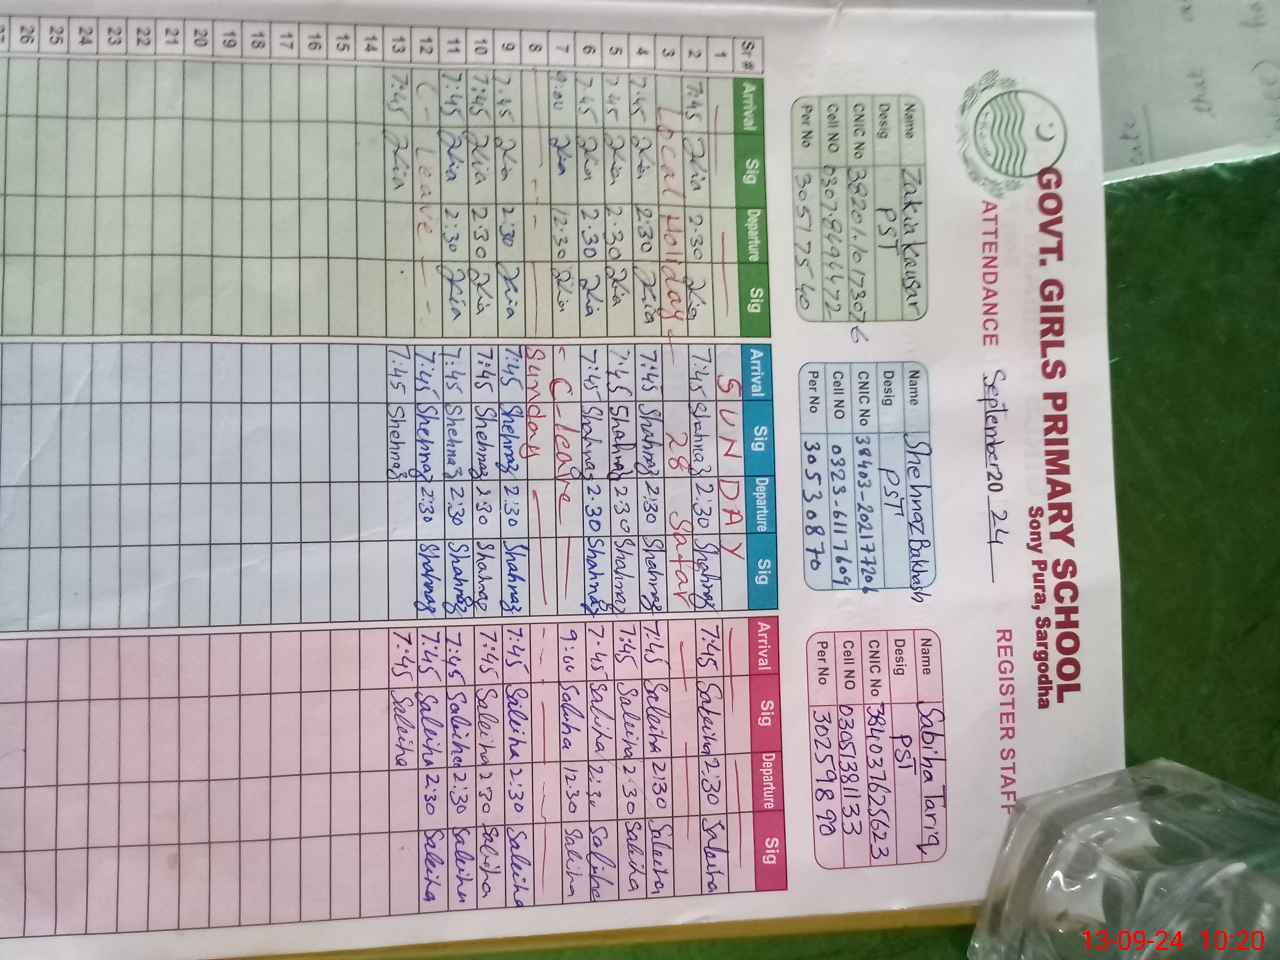 GOVT. GIRLS PRIMARY SCHOOL
Sony Pura, Sargodha
ATTENDANCE September 2024 REGISTER STAFF
Name Zakia Kausar
Desig PST
CNIC No
Cell NO
Per No 30517540
Name Shehnaz Bakhash
Desig PST
CNIC No 38403-2021720
Cell NO 0323-6117609
Per No 30530870
Name Sabiha Tariq
Desig PST
CNIC No 384037625623
Cell NO 03051381133
Per No 30259890
Sr # Arrival Sig Departure Sig Arrival Sig Departure Sig Arrival Sig Departure Sig
1 SUNDAY
2 7:45 Zkia 2:30 Zkia 7:45 Shahnaz 2:30 Shahnaz 7:45 Sabiha 2:30 Sabiha
3 Local Holiday 28 Safar
4 7:45 Zkia 2:30 Zkia 7:45 Shahnaz 2:30 Shahnaz 7:45 Sabiha 2:30 Sabiha
5 7:45 Zkia 2:30 Zkia 7:45 Shahnaz 2:30 Shahnaz 7:45 Sabiha 2:30 Sabiha
6 7:45 Zkia 2:30 Zkia 7:45 Shahnaz 2:30 Shahnaz 7:45 Sabiha 2:30 Sabiha
7 9:00 Zkia 12:30 Zkia C-leave 9:00 Sabiha 12:30 Sabiha
8 Sunday
9 7:45 Zkia 2:30 Zkia 7:45 Shehnaz 2:30 Shahnaz 7:45 Sabiha 2:30 Sabiha
10 7:45 Zkia 2:30 Zkia 7:45 Shehnaz 2:30 Shahnaz 7:45 Sabiha 2:30 Sabiha
11 7:45 Zkia 2:30 Zkia 7:45 Shehnaz 2:30 Shahnaz 7:45 Sabiha 2:30 Sabiha
12 C- Leave 7:45 Shehnaz 2:30 Shahnaz 7:45 Sabiha 2:30 Sabiha
13 7:45 Zkia 7:45 Shehnaz 7:45 Sabiha
14
15
16
17
18
19
20
21
22
23
24
25
26
27
13-09-24 10:20